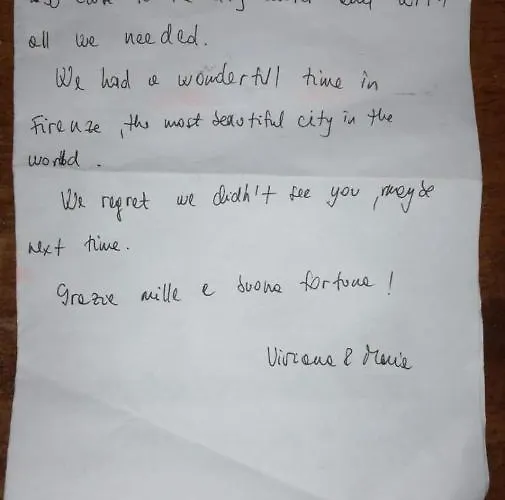 all we needed.
We had a wonderful time in
Firenze, the most beautiful city in the
world.
We regret we didn't see you, maybe
next time.
Grazie mille e buona fortuna!
Viviana & Maria